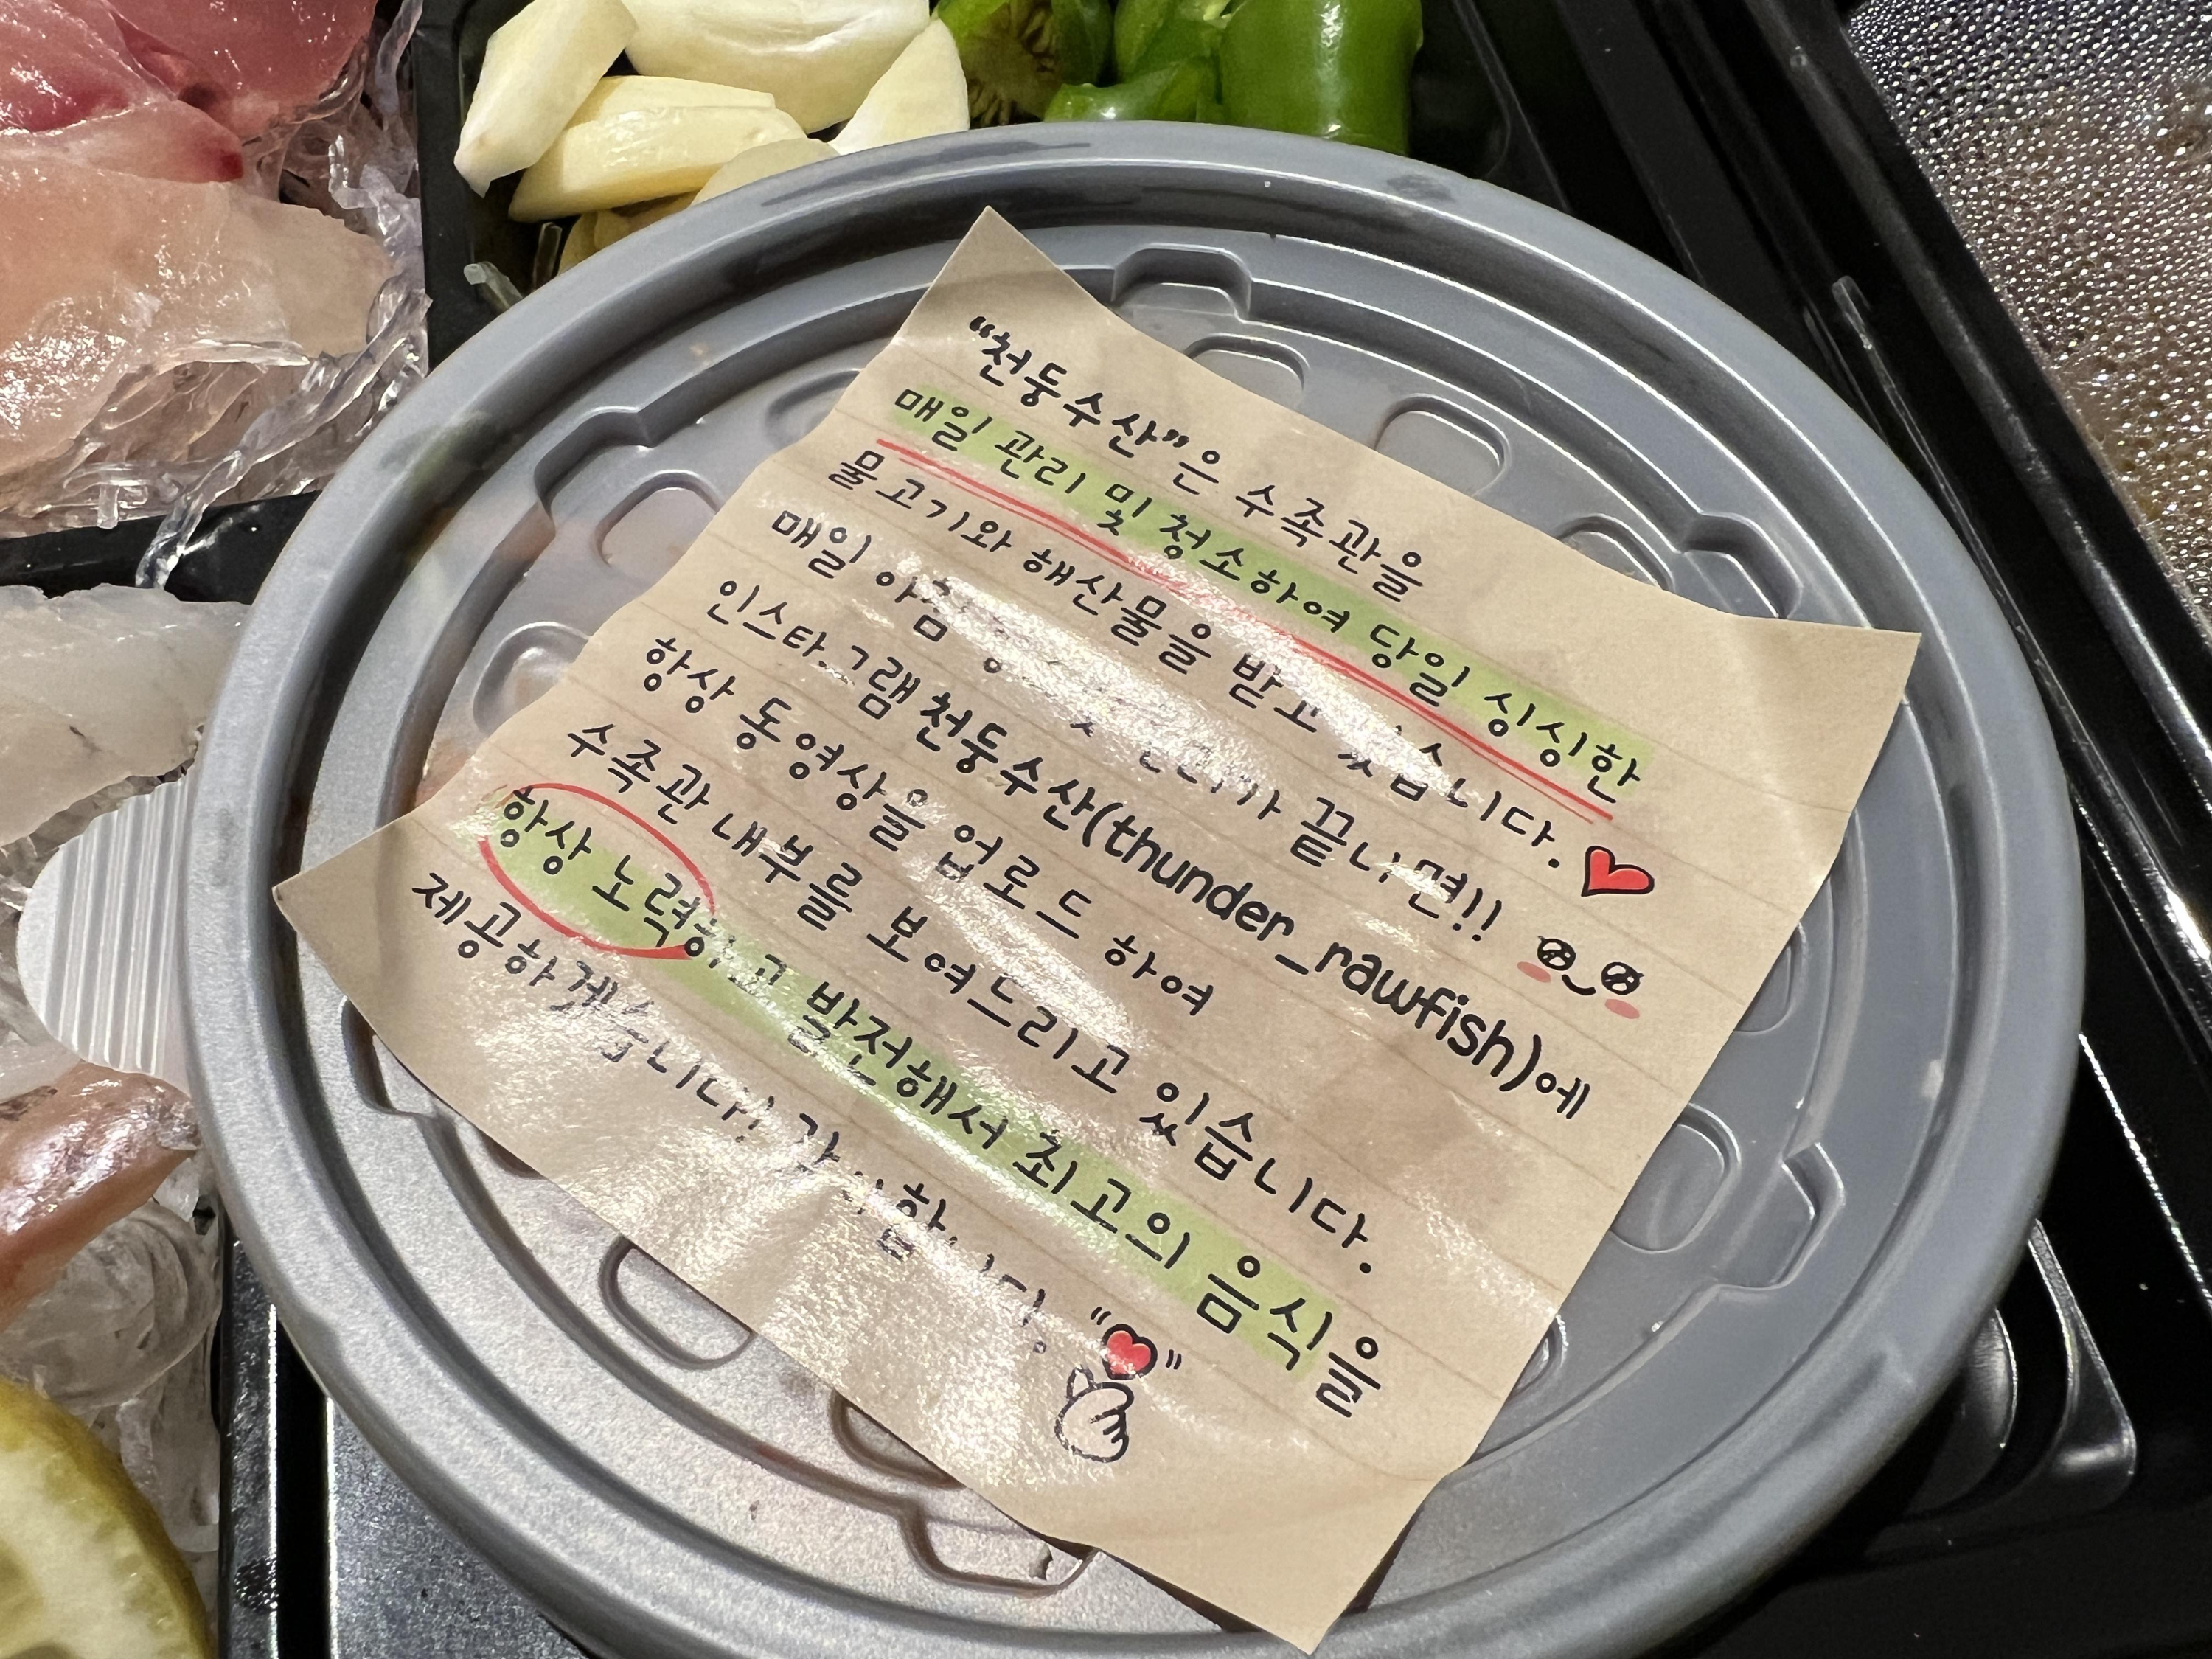 "천둥수산"은 수족관을
매일 관리 및 청소하여 당일 싱싱한
물고기와 해산물을 받고 있습니다.
매일 아침 끝나면!!
인스타그램 천둥수산(thunder_rawfish)에
항상 동영상을 업로드 하여
수족관 내부를 보여드리고 있습니다.
항상 노력하고 발전해서 최고의 음식을
제공하겠습니다! 감사합니다.